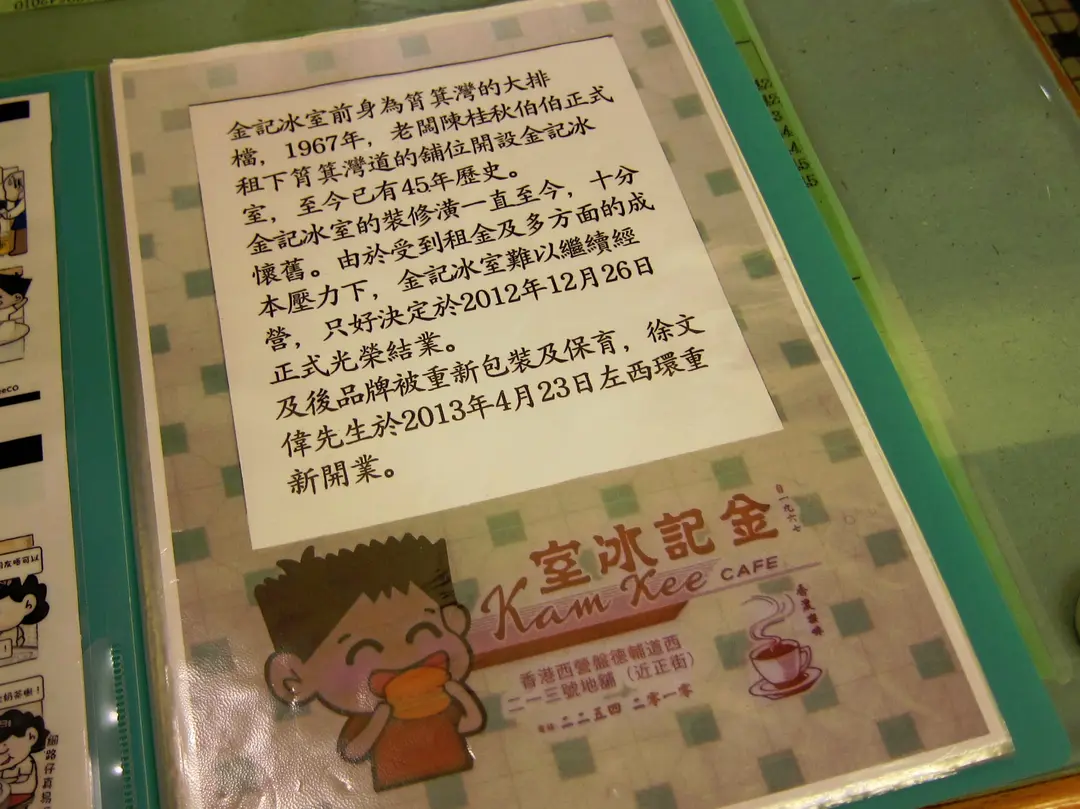 金記冰室前身為筲箕灣的大排
檔，1967年，老闆陳桂秋伯伯正式
租下筲箕灣道的舖位開設金記冰
室，至今已有45年歷史。
金記冰室的裝修潢一直至今，十分
懷舊。由於受到租金及多方面的成
本壓力下，金記冰室難以繼續經
營，只好決定於2012年12月26日
正式光榮結業。
及後品牌被重新包裝及保育，徐文
偉先生於2013年4月23日左西環重
新開業。
自一九六七
室冰記金
Kam Kee CAFE
香港西營盤德輔道西
二一三號地舖（近正街）
二二五四 二零一零